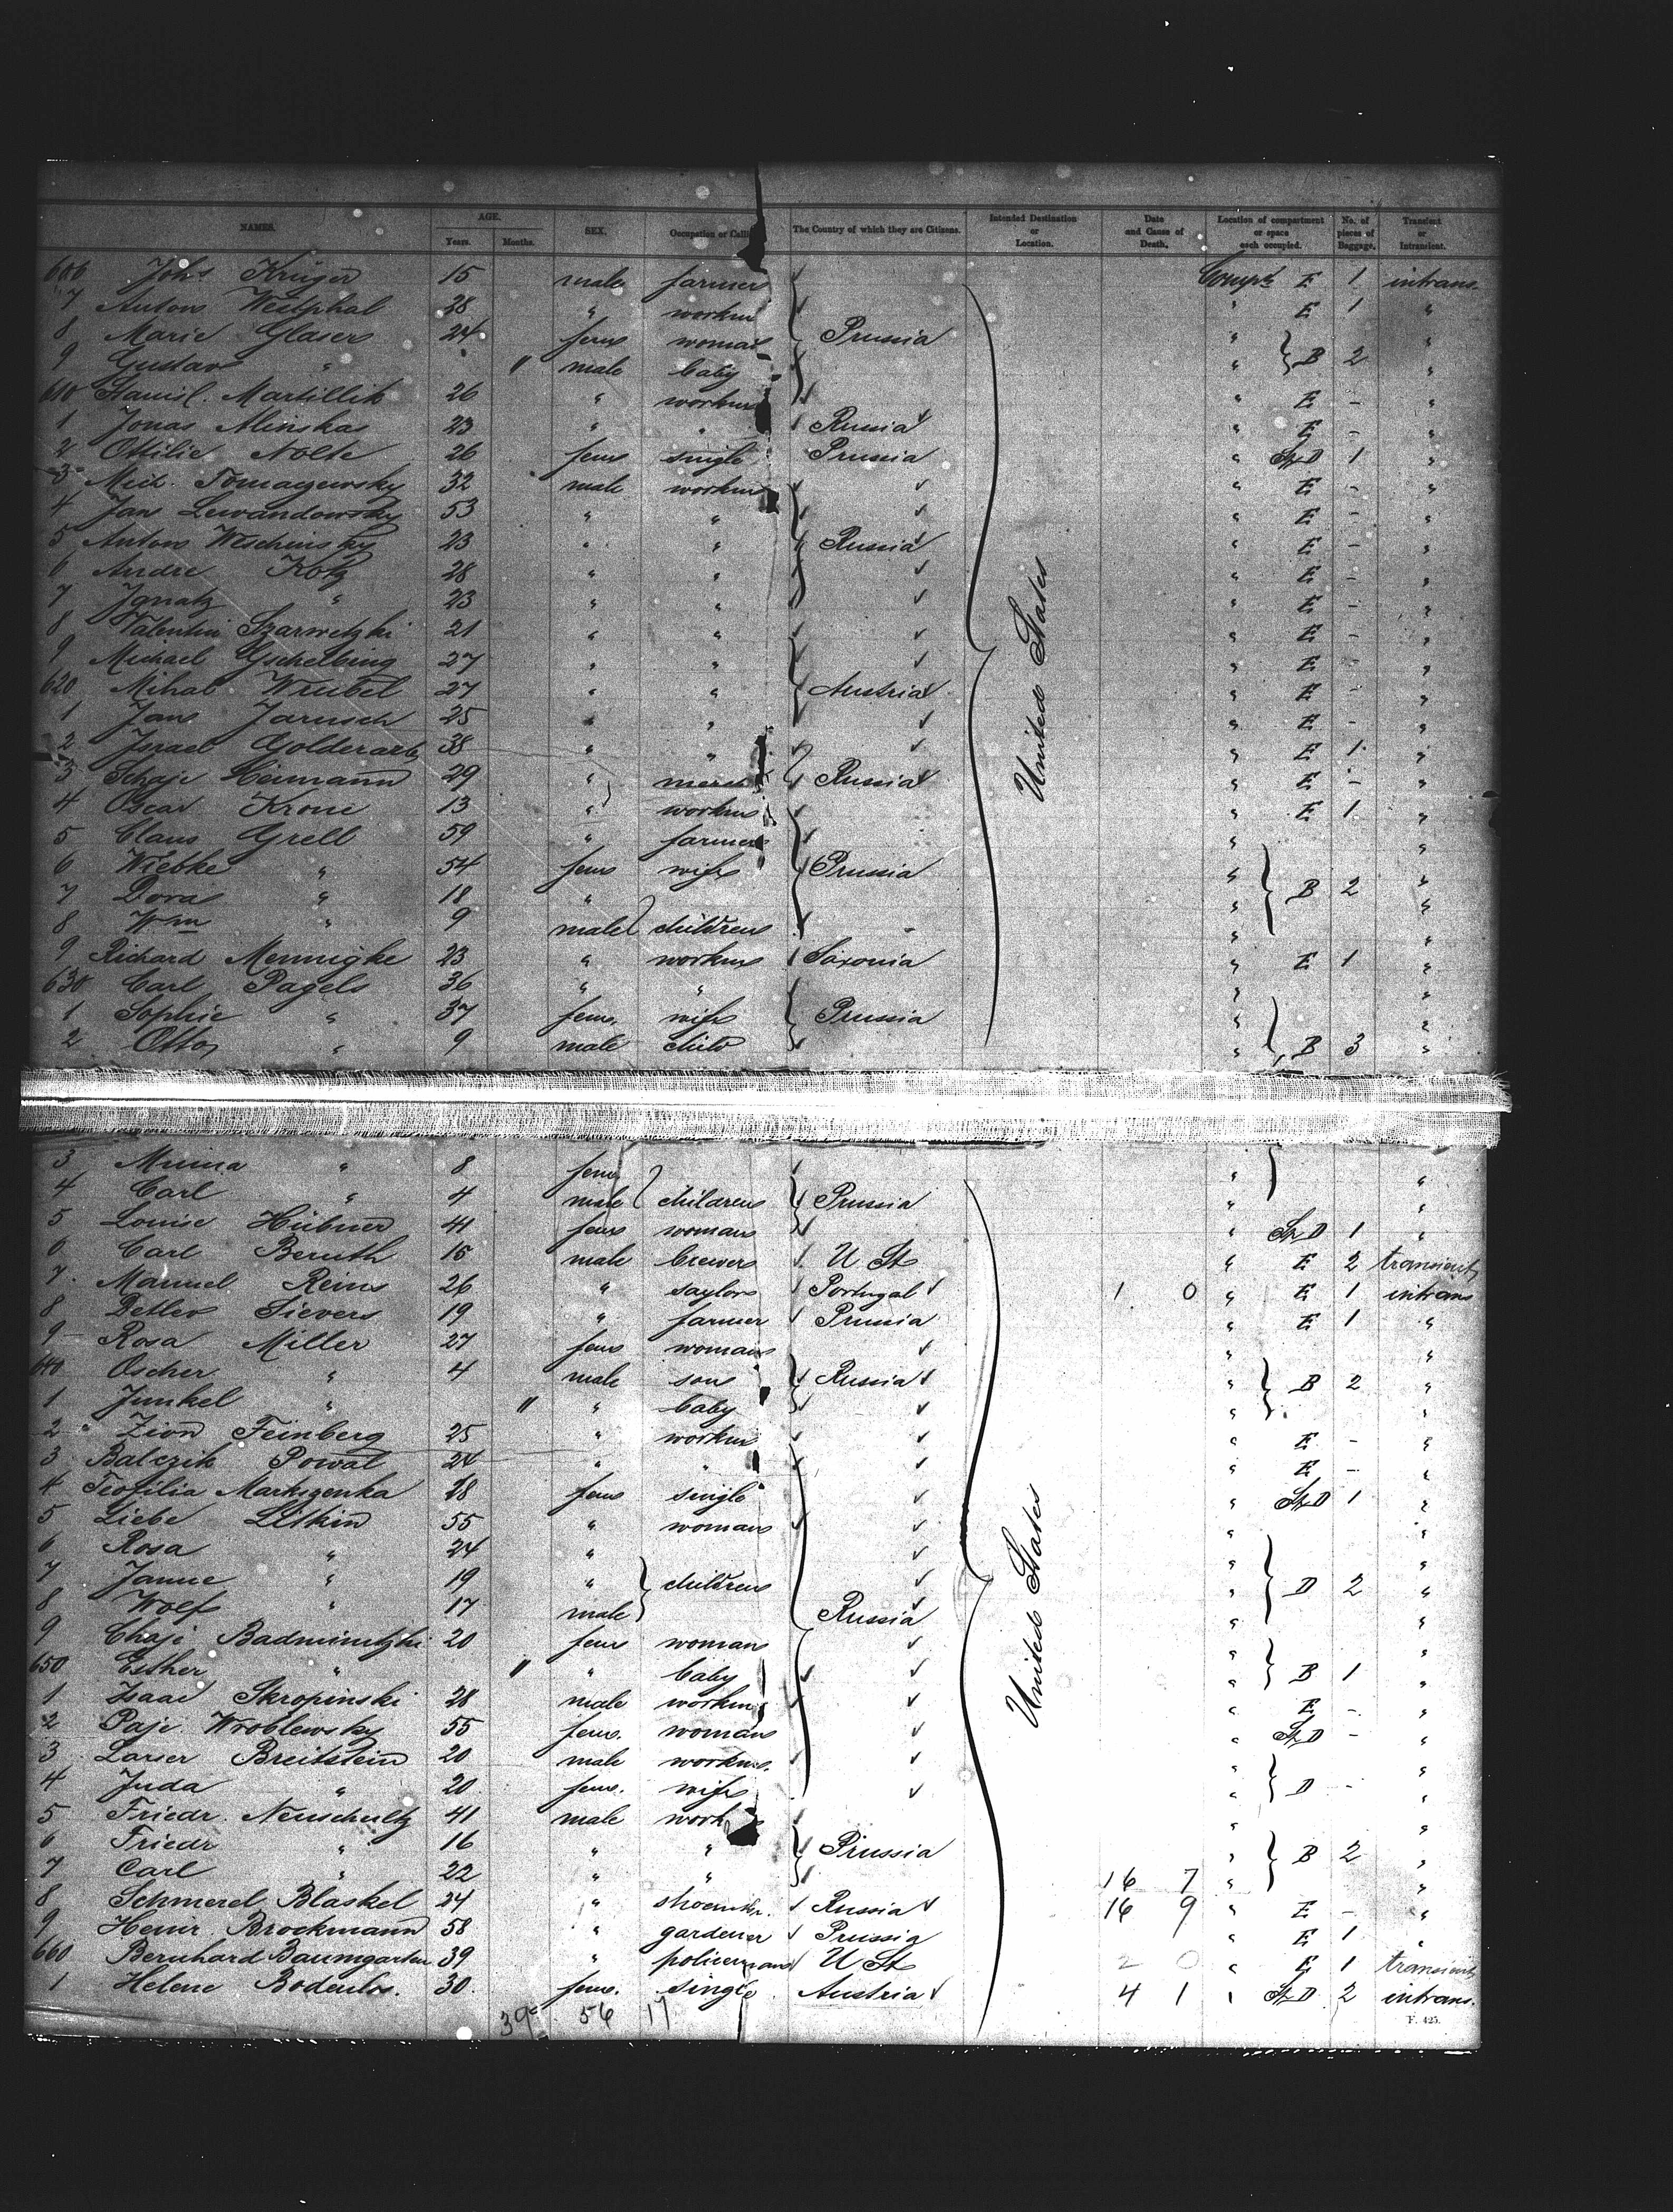 NAMES. AGE. Years. Months. SEX. Occupation or Calling The Country of which they are Citizens. Intended Destination or Location. Date and Cause of Death. Location of compartment or space each occupied. No. of pieces of Baggage. Transient or Intransient.
606 Johs Krüger 15 male farmer Compt E 1 intrans.
7 Anton Westphal 28 " workm " E 1 "
8 Marie Glaser 24 fem woman Prussia " "
9 Gustav " 11 male baby " B 2 "
610 Stanisl. Martillik 26 " workm " E - "
1 Jonas Minskas 23 " " Russia " E - "
2 Ottilie Nolte 26 fem single Prussia " St D 1 "
3 Mich. Tomaszewsky 32 male workm " E - "
4 Jan Lewandowsky 53 " " " E - "
5 Anton Weschinsky 23 " " Russia " E - "
6 Andre Kotz 28 " " " E - "
7 Ignatz " 23 " " " E - "
8 Valentin Szarwetzki 21 " " " E - "
9 Michael Gschelbing 27 " " " E - "
620 Mihal Wrubel 27 " " Austria " E - "
1 Jan Jarusch 25 " " " E - "
2 Israel Golderarb 38 " " " E 1 "
3 Schaje Heimann 29 " merch Russia " E - "
4 Oscar Krone 13 " workm " E 1 "
5 Claus Grell 59 " farmer " "
6 Wiebke " 54 fem wife Prussia " "
7 Dora " 18 " " B 2 "
8 Wm " 9 male children " "
9 Richard Mennigke 23 " workm Saxonia " E 1 "
630 Carl Pagels 36 " " " "
1 Sophie " 37 fem. wife Prussia " "
2 Otto " 9 male child " B 3 "
United States
3 Minna " 8 fem " "
4 Carl " 4 male children Prussia " "
5 Louise Hübner 41 fem woman " St D 1 "
6 Carl Beruth 15 male brewer U St " E 2 transient
7 Manuel Reins 26 " saylor Portugal 1 0 " E 1 intrans
8 Detlev Sievers 19 " farmer Prussia " E 1 "
9 Rosa Miller 27 fem woman " "
640 Oscher " 4 male son Russia " B 2 "
1 Junkel " 11 " baby " "
2 Zion Feinberg 25 " workm " E - "
3 Balczik Powal 24 " " " E - "
4 Teofilia Markszenka 28 fem single " St D 1 "
5 Liebe Litkin 55 " woman " "
6 Rosa " 24 " " "
7 Janne " 19 " children " D 2 "
8 Wolf " 17 male Russia " "
9 Chaje Badminitzki 20 fem woman " "
650 Esther " 11 " baby " B 1 "
1 Isaac Skropinski 28 male workm " E - "
2 Paje Wroblewsky 55 fem. woman " St D - "
3 Larser Breitstein 20 male workm. " "
4 Juda " 20 fem. wife " D - "
5 Friedr. Neuschultz 41 male work " "
6 Friedr " 16 " " Prussia " B 2 "
7 Carl " 22 " " 16 7 " "
8 Schmerel Blaskel 24 " shoemkr. Russia 16 9 " E - "
9 Heinr Brockmann 58 " gardener Prussia " E 1 "
660 Bernhard Baumgarten 39 " policeman U St 2 0 " E 1 transient
1 Helene Bodenlos. 30 fem. single Austria 4 1 " St D 2 intrans.
United States
39 56 17
F. 425.